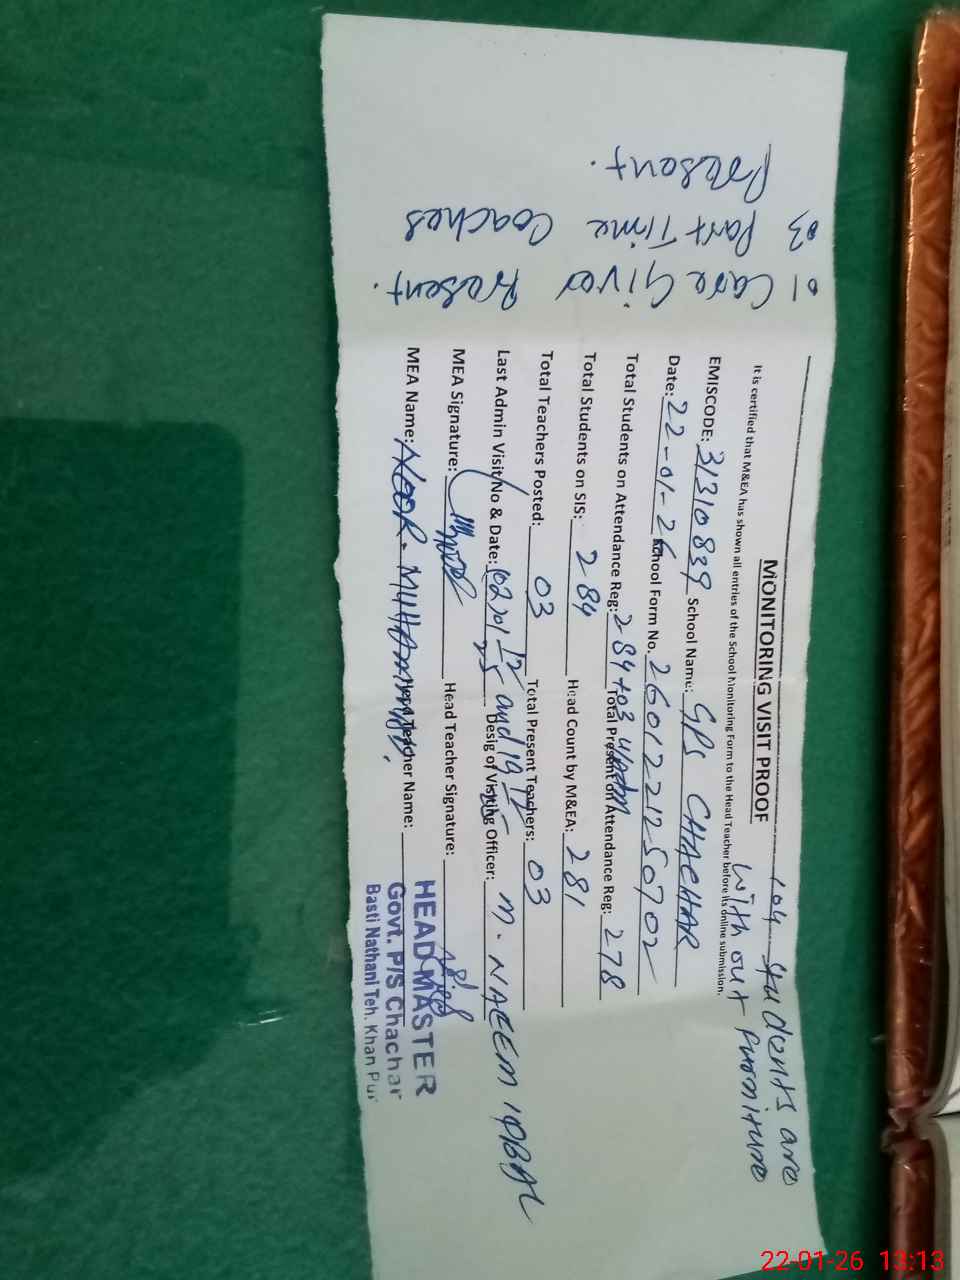 104 students are
with out Furniture
MONITORING VISIT PROOF
It is certified that M&EA has shown all entries of the School Monitoring Form to the Head Teacher before its online submission.
EMISCODE: 31310839 School Name: GPS CHACHAR
Date: 22-01-26 School Form No. 2601221250702
Total Students on Attendance Reg: 284+03 Total Present on Attendance Reg: 278
Total Students on SIS: 284 Head Count by M&EA: 281
Total Teachers Posted: 03 Total Present Teachers: 03
Last Admin Visit No & Date: 02 and Desig of Visiting Officer: M. NAEEM IQBAL
MEA Signature: Head Teacher Signature:
MEA Name: NOOR. MUHAMMAD. Head Teacher Name:
HEAD MASTER
Govt. P/S Chachar
Basti Nathani Teh. Khan Pur
01 Care Giver Present.
03 Part Time Coaches
Present.
22-01-26 13:13